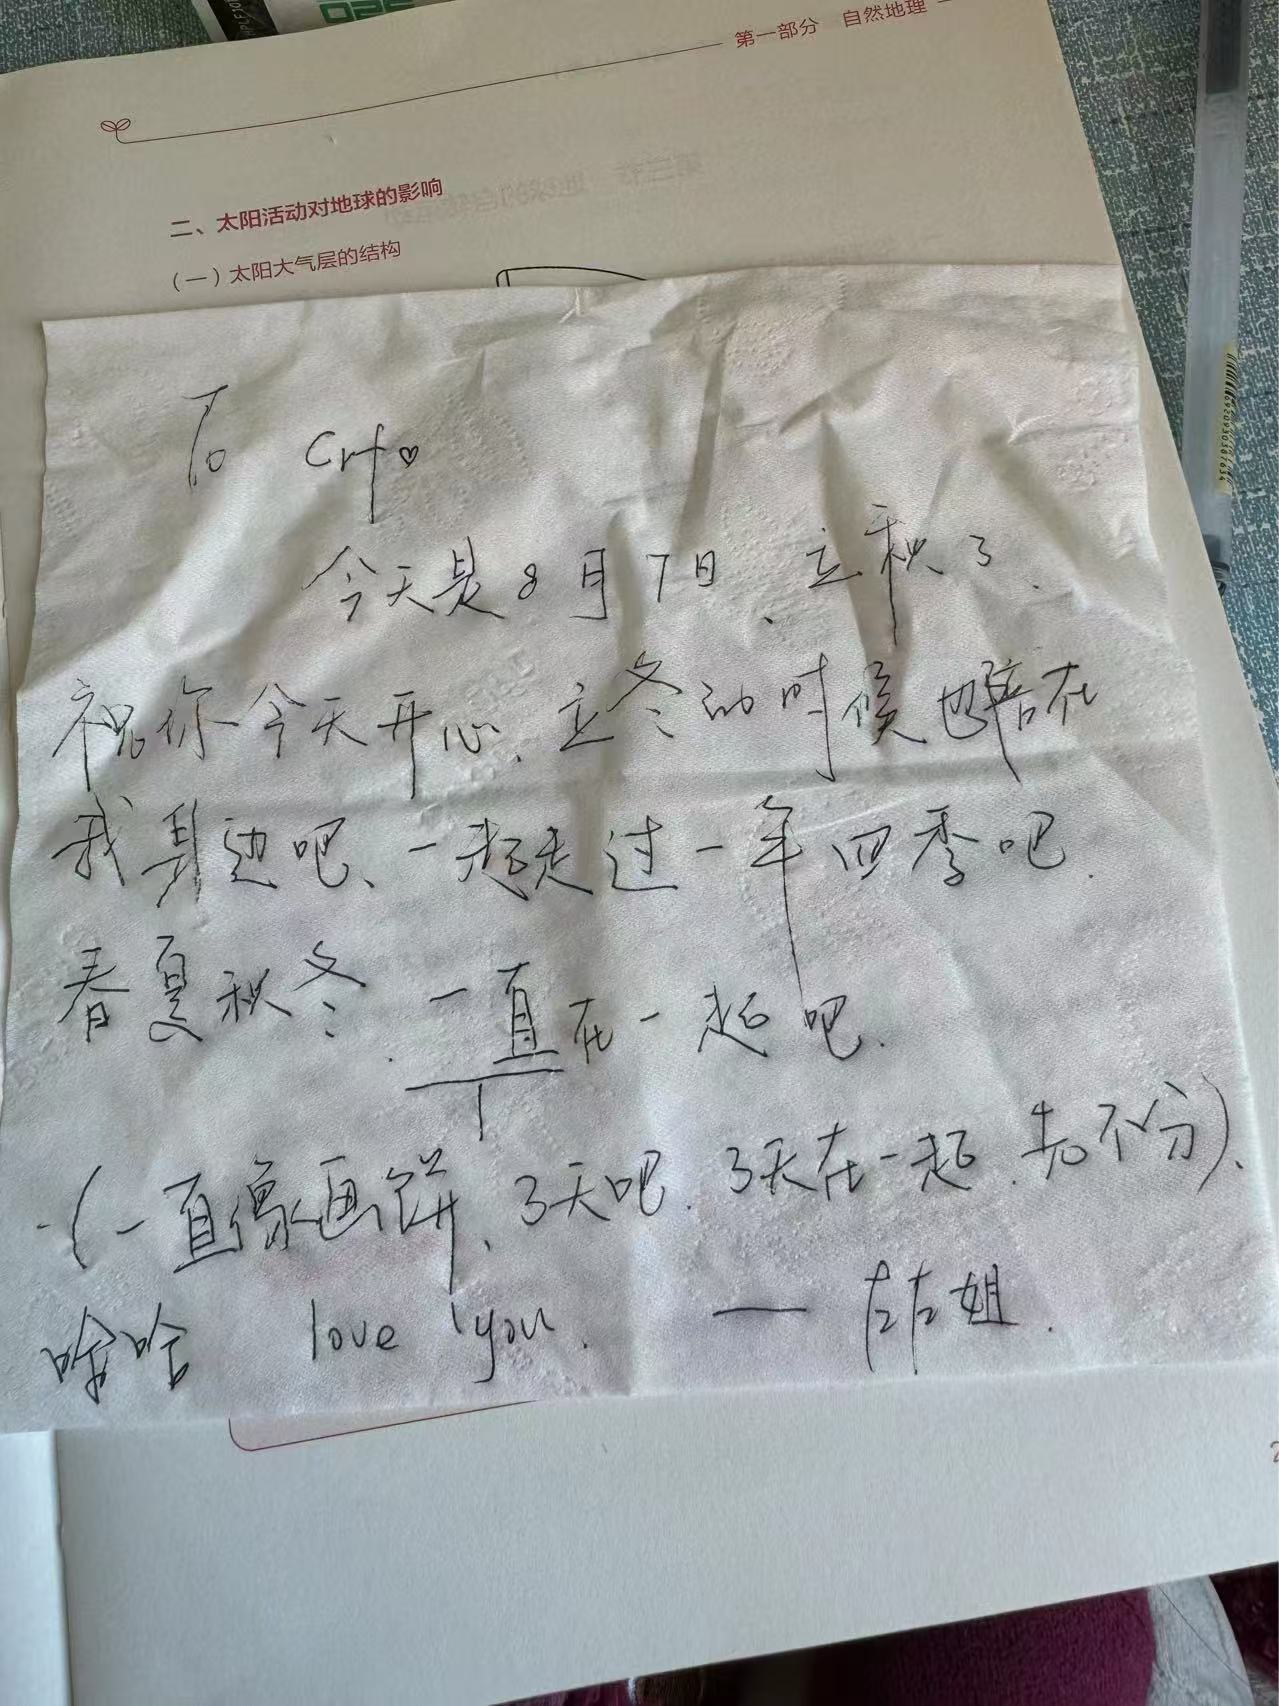 第一部分 自然地理
二、太阳活动对地球的影响
（一）太阳大气层的结构
To Crf
今天是8月7日、立秋了、
祝你今天开心、立冬的时候也陪在
我身边吧、一起走过一年四季吧.
春夏秋冬.一直在一起吧.
(一直像画饼、3天吧.3天在一起.先不分)、
哈哈 love you. —左左姐.
6920930387634